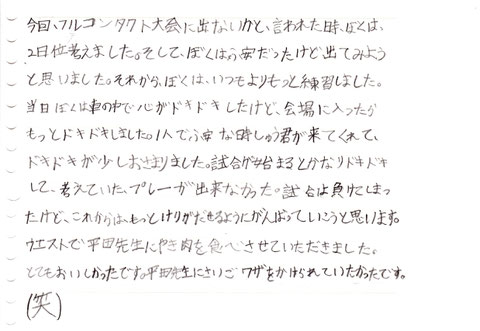 今回、フルコンタクト大会に出ないかと、言われた時、ぼくは、
2日位考えました。そして、ぼくはふ安だったけど出てみよう
と思いました。それから、ぼくは、いつもよりもっと練習しました。
当日ぼくは車の中で心がドキドキしたけど、会場に入ったら
もっとドキドキしました。1人でふ安な時しゅう君が来てくれて、
ドキドキが少しおさまりました。試合が始まるとかなりドキドキ
して、考えていた、プレーが出来なかった。試合は負けてしまっ
たけど、これからは、もっとけりがだせるようにがんばっていこうと思います。
ウエストで平田先生にやき肉を食べさせていただきました。
とてもおいしかったです。平田先生にさいごワザをかけられていたかったです。
(笑)